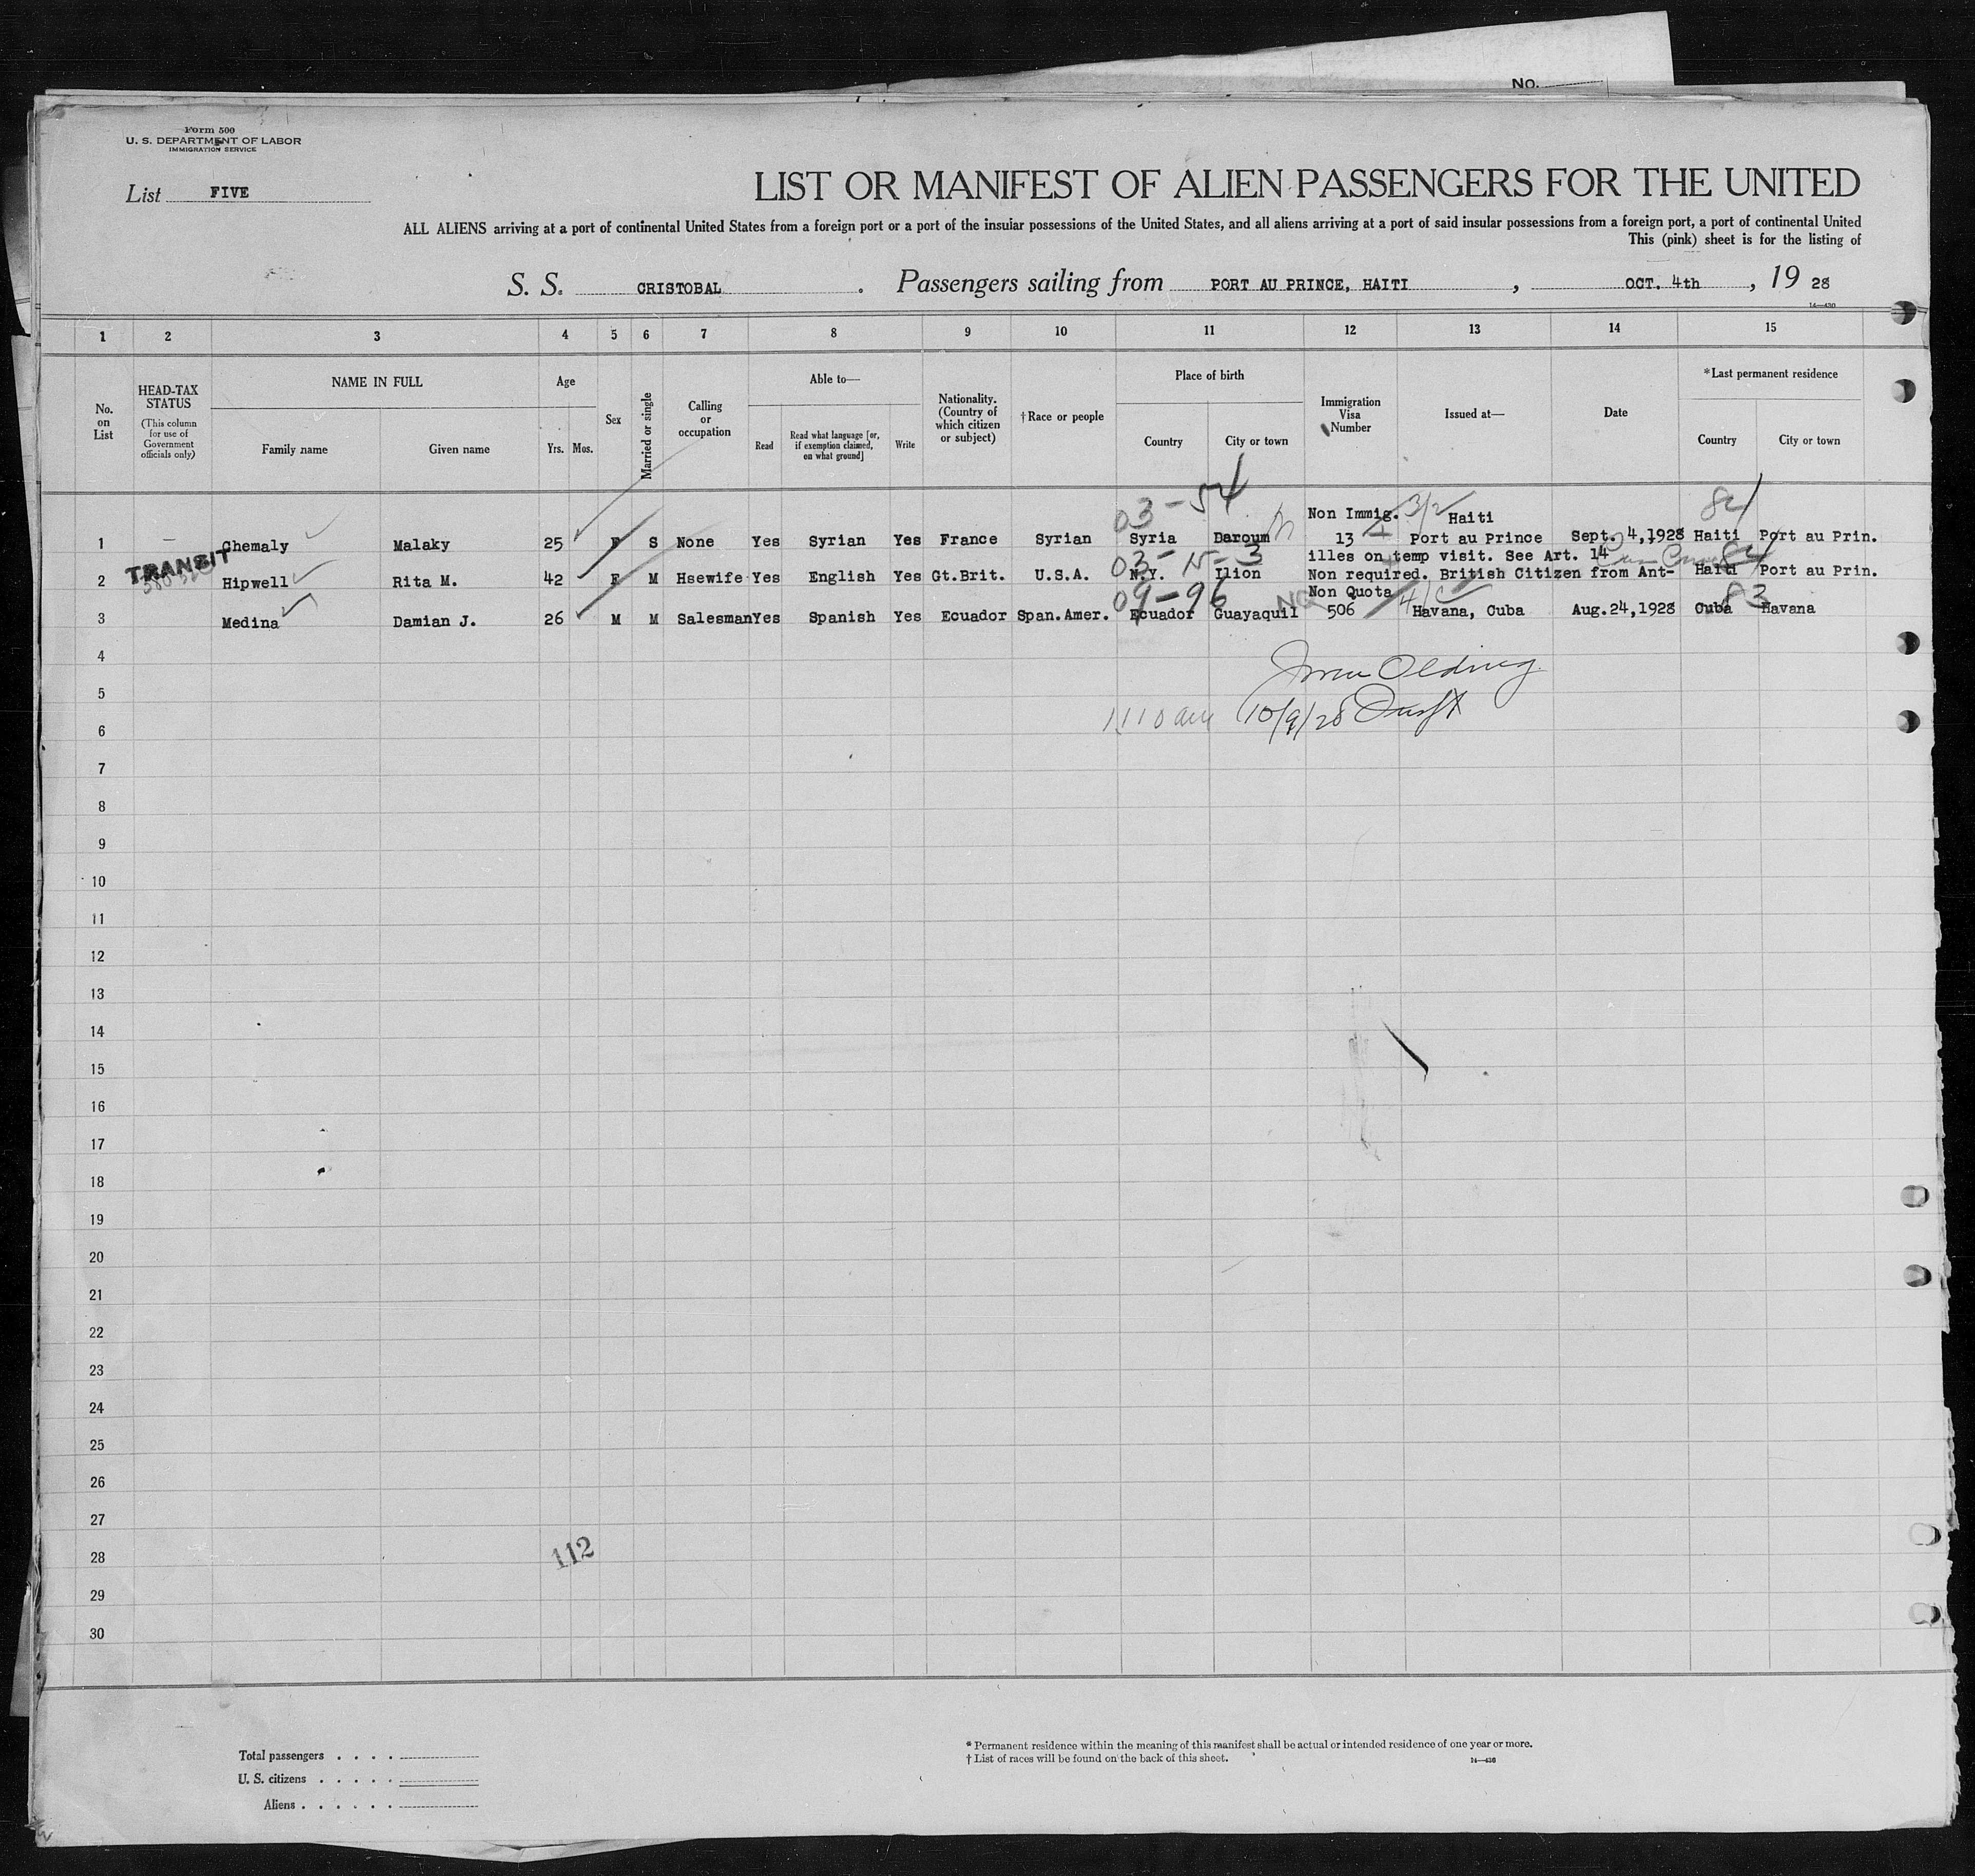 No.
Form 500
U. S. DEPARTMENT OF LABOR
IMMIGRATION SERVICE
List FIVE
LIST OR MANIFEST OF ALIEN PASSENGERS FOR THE UNITED
ALL ALIENS arriving at a port of continental United States from a foreign port or a port of the insular possessions of the United States, and all aliens arriving at a port of said insular possessions from a foreign port, a port of continental United
This (pink) sheet is for the listing of
S. S. CRISTOBAL . Passengers sailing from PORT AU PRINCE, HAITI , OCT. 4th , 19 28
14—430
1 2 3 4 5 6 7 8 9 10 11 12 13 14 15
No. on List
HEAD-TAX STATUS
(This column for use of Government officials only)
NAME IN FULL
Family name
Given name
Age
Yrs. Mos.
Sex
Married or single
Calling or occupation
Able to—
Read
Read what language [or, if exemption claimed, on what ground]
Write
Nationality. (Country of which citizen or subject)
†Race or people
Place of birth
Country
City or town
Immigration Visa Number
Issued at—
Date
*Last permanent residence
Country
City or town
03-54 Non Immig. 3/2 Haiti 84
1 — Chemaly Malaky 25 F S None Yes Syrian Yes France Syrian Syria Daroum 13 Port au Prince Sept. 4,1928 Haiti Port au Prin.
TRANSIT
03-15-3 illes on temp visit. See Art. 14 84
2 Hipwell Rita M. 42 F M Hsewife Yes English Yes Gt.Brit. U.S.A. N.Y. Ilion Non required. British Citizen from Ant- Haiti Port au Prin.
09-96 NQ Non Quota 4/c 83
3 Medina Damian J. 26 M M Salesman Yes Spanish Yes Ecuador Span.Amer. Ecuador Guayaquil 506 Havana, Cuba Aug.24,1928 Cuba Havana
4
5
6
1110 am 10/9/28
7
8
9
10
11
12
13
14
15
16
17
18
19
20
21
22
23
24
25
26
27
28
112
29
30
Total passengers
U. S. citizens
Aliens
* Permanent residence within the meaning of this manifest shall be actual or intended residence of one year or more.
† List of races will be found on the back of this sheet.
14—430